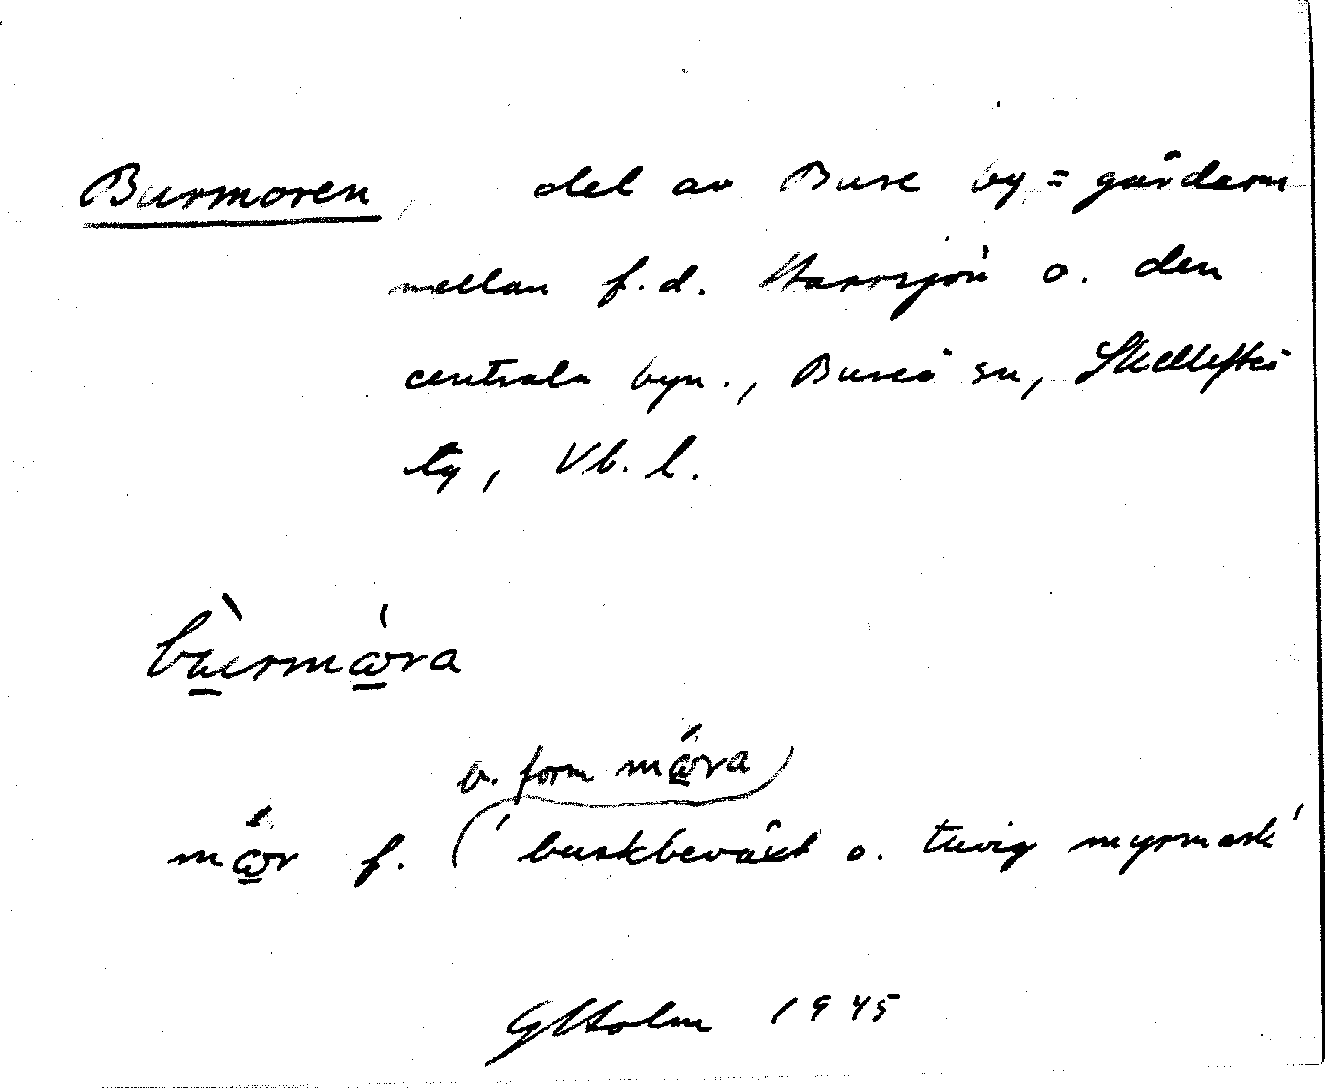 Burmoren, del av Bure by = gårdarna
mellan f.d. Harrsjön o. den
centrala byn., Bureå sn, Skellefteå
tg, Vb. l.
bùrmὼra
b. form mώra
mώr f. ( ' buskbeväxt o. tuvig myrmark '
GHolm 1945